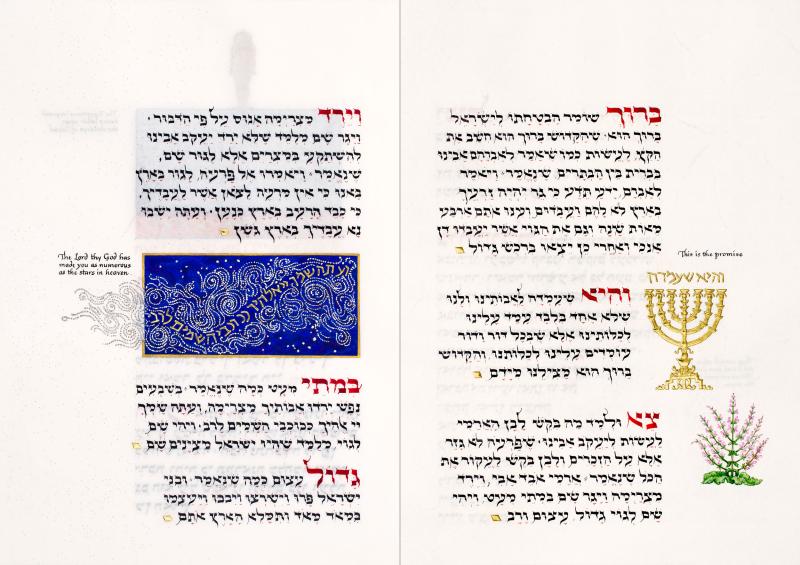 ברוך שומר הבטחתו לישראל
ברוך הוא · שהקדוש ברוך הוא חשב את
הקץ, לעשות כמו שאמר לאברהם אבינו
בברית בין הבתרים, שנאמר · ויאמר
לאברם, ידע תדע כי גר יהיה זרעך
בארץ לא להם ועבדום וענו אתם ארבע
מאות שנה וגם את הגוי אשר יעבדו דן
אנכי ואחרי כן יצאו ברכש גדול
This is the promise
והיא שעמדה
והיא שעמדה לאבותינו ולנו
שלא אחד בלבד עמד עלינו
לכלותינו אלא שבכל דור ודור
עומדים עלינו לכלותנו, והקדוש
ברוך הוא מצילנו מידם
צא ולמד מה בקש לבן הארמי
לעשות ליעקב אבינו · שפרעה לא גזר
אלא על הזכרים, ולבן בקש לעקור את
הכל שנאמר · ארמי אבד אבי, וירד
מצרימה ויגר שם במתי מעט, ויהי
שם לגוי גדול עצום ורב
וירד מצרימה אנוס על פי הדבור ·
ויגר שם מלמד שלא ירד יעקב אבינו
להשתקע במצרים אלא לגור שם,
שנאמר · ויאמרו אל פרעה, לגור בארץ
באנו כי אין מרעה לצאן אשר לעבדיך,
כי כבד הרעב בארץ כנען · ועתה ישבו
נא עבדיך בארץ גשן
The Lord thy God has
made you as numerous
as the stars in heaven
ועתה שמך יי אלהיך ככוכבי השמים לרב
במתי מעט כמה שנאמר · בשבעים
נפש ירדו אבותיך מצרימה, ועתה שמך
יי אלהיך ככוכבי השמים לרב · ויהי שם
לגוי, מלמד שהיו ישראל מצינים שם
גדול עצום כמה שנאמר · ובני
ישראל פרו וישרצו וירבו ויעצמו
במאד מאד ותמלא הארץ אתם